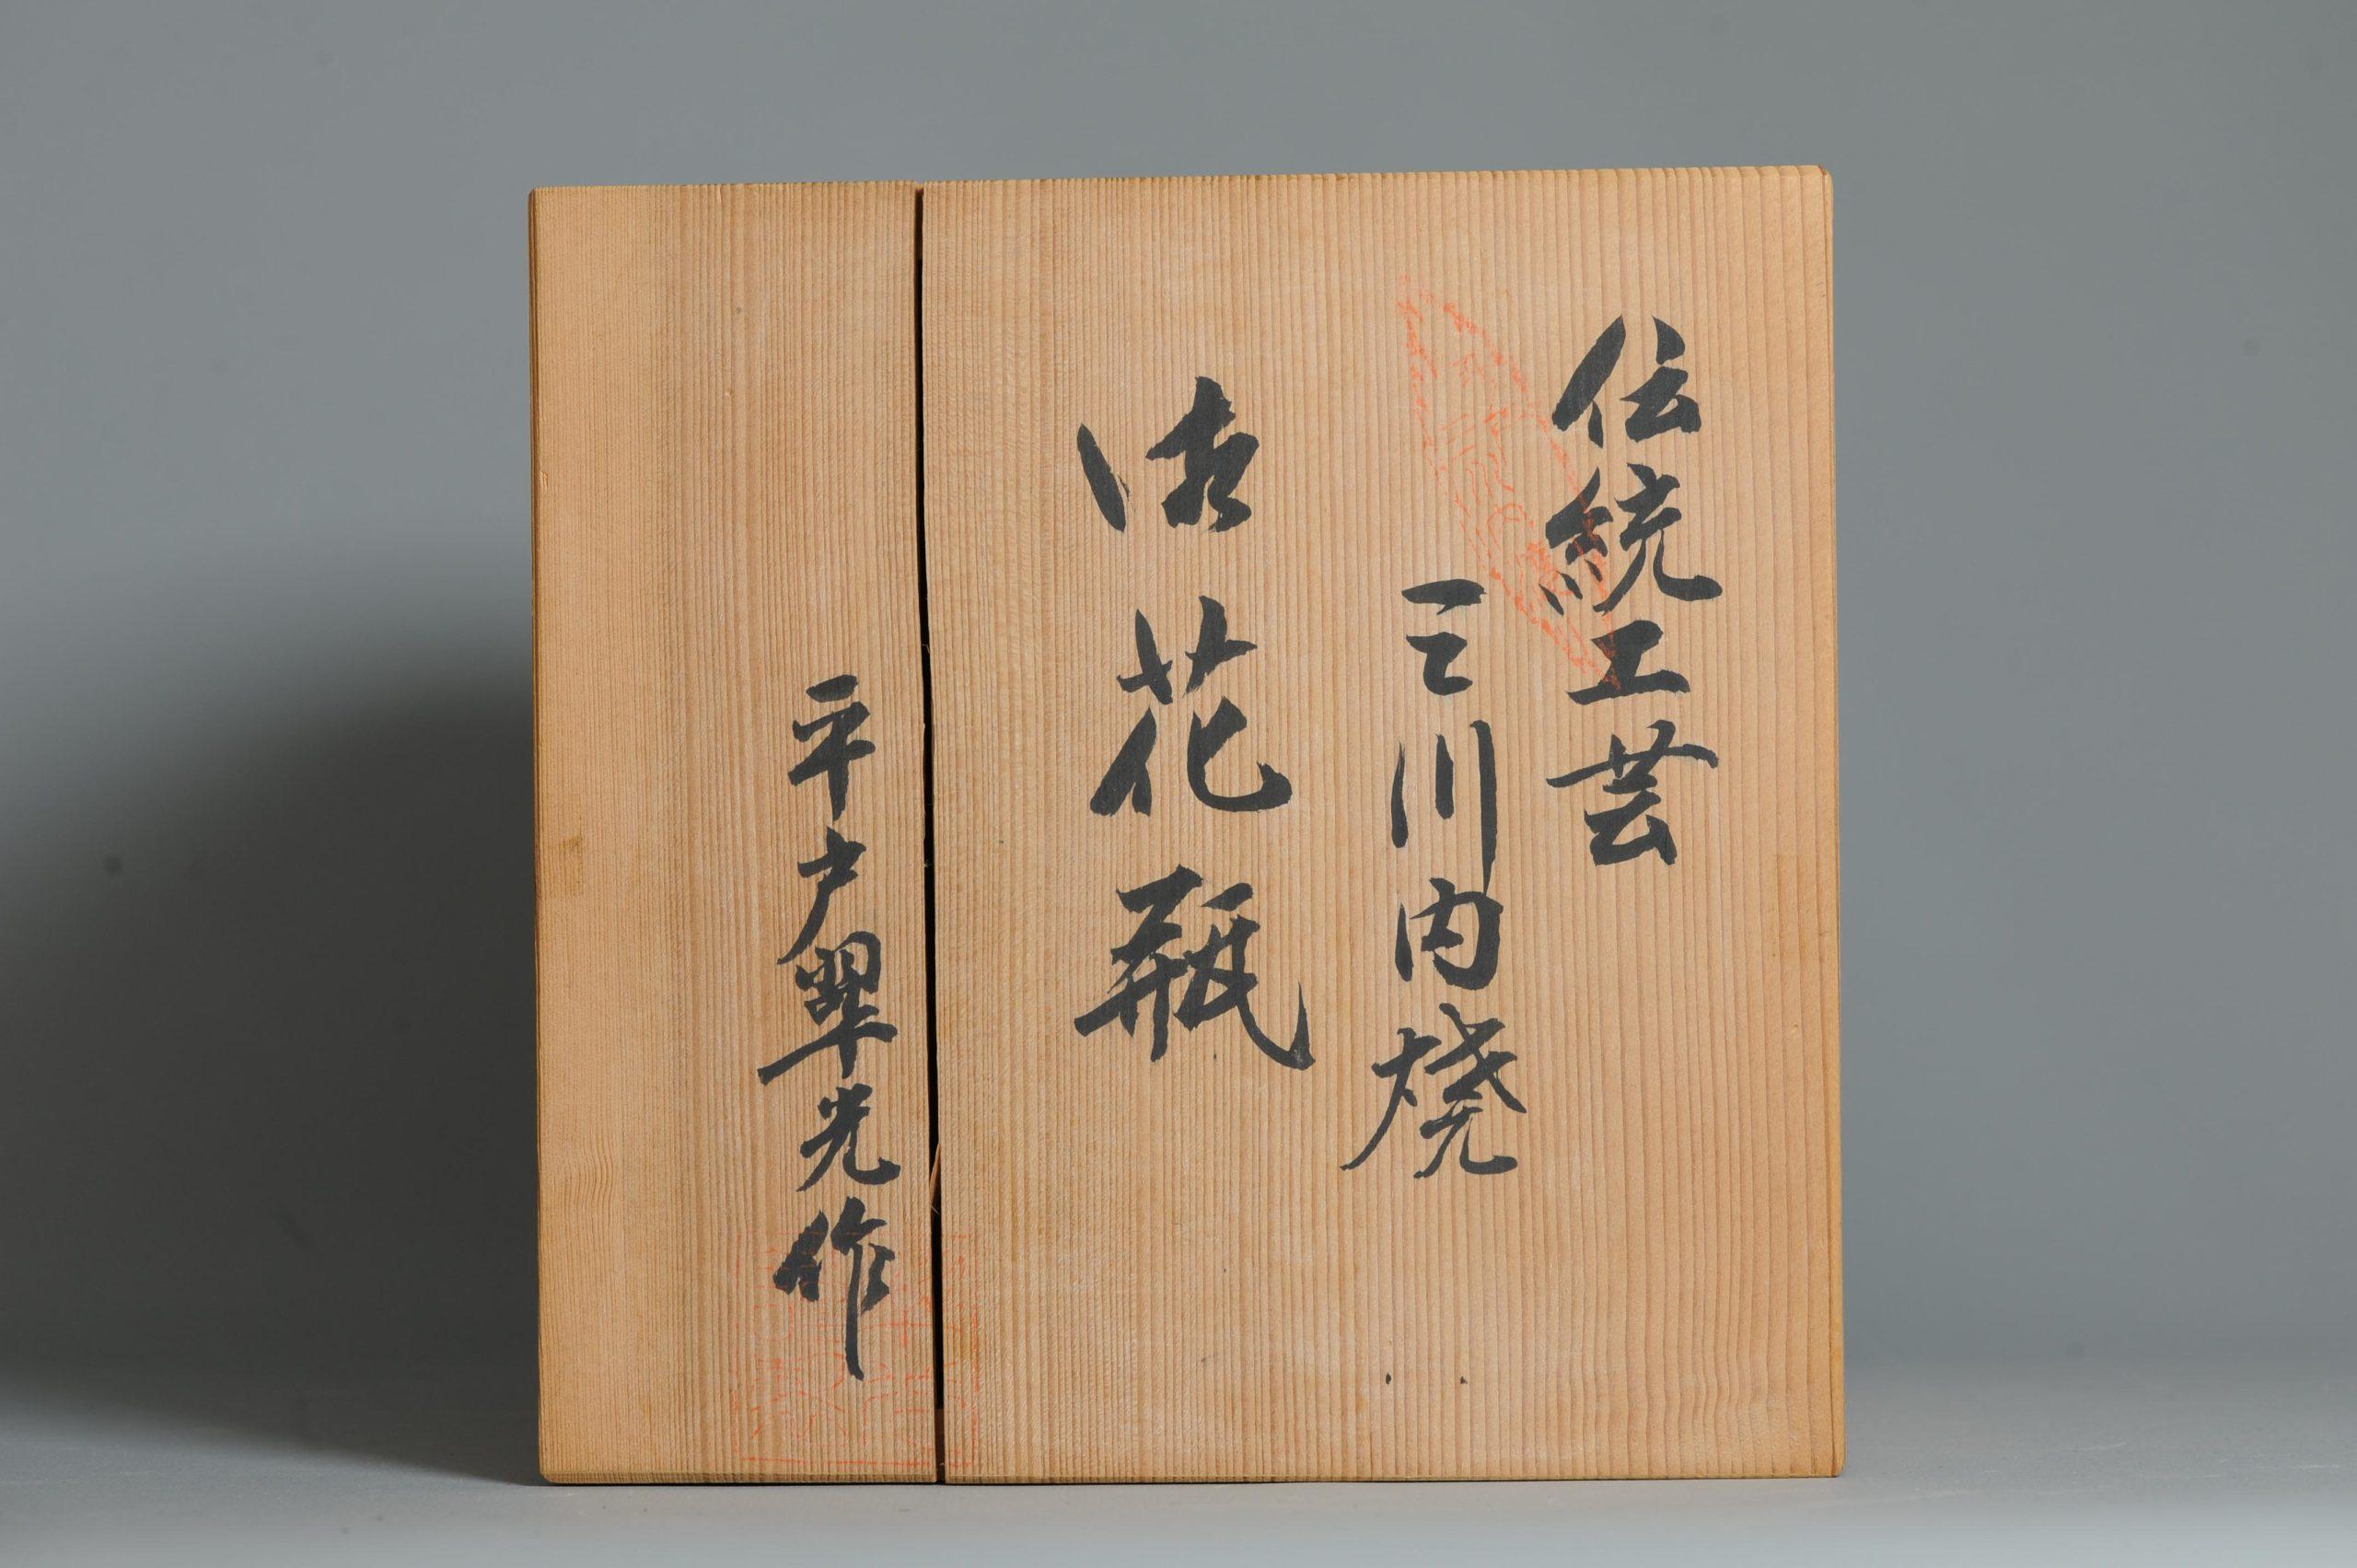 伝統工芸
三川内焼
御花瓶
平戸翠光作